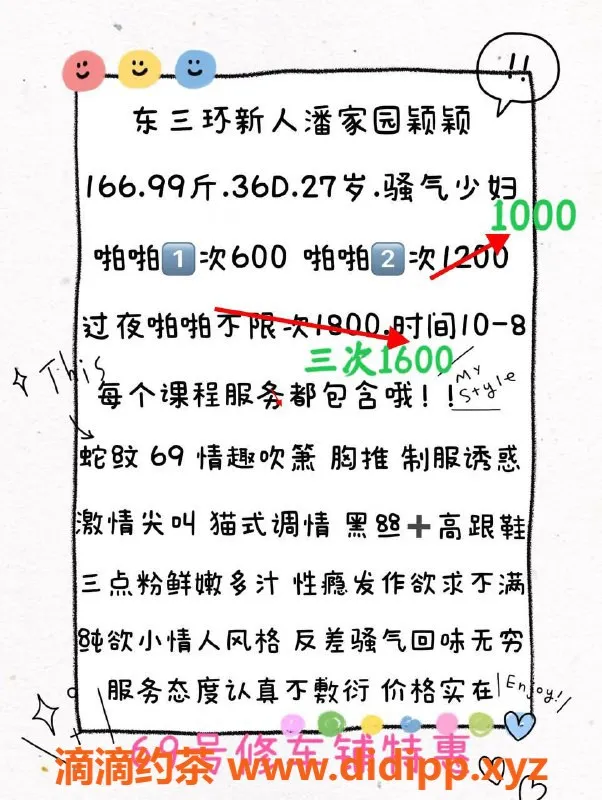 !!
东三环新人潘家园颖颖
166.99斤.36D.27岁.骚气少妇
1000
啪啪1️⃣次600 啪啪2️⃣次1200
过夜啪啪不限次1800.时间10-8
三次1600
This
每个课程服务都包含哦！！
My Style
蛇蚊 69 情趣吹箫 胸推 制服诱惑
激情尖叫 猫式调情 黑丝➕高跟鞋
三点粉鲜嫩多汁 性瘾发作欲求不满
纯欲小情人风格 反差骚气回味无穷
服务态度认真不敷衍 价格实在
Enjoy!
69号修车铺特惠
滴滴约茶 www.didipp.xyz